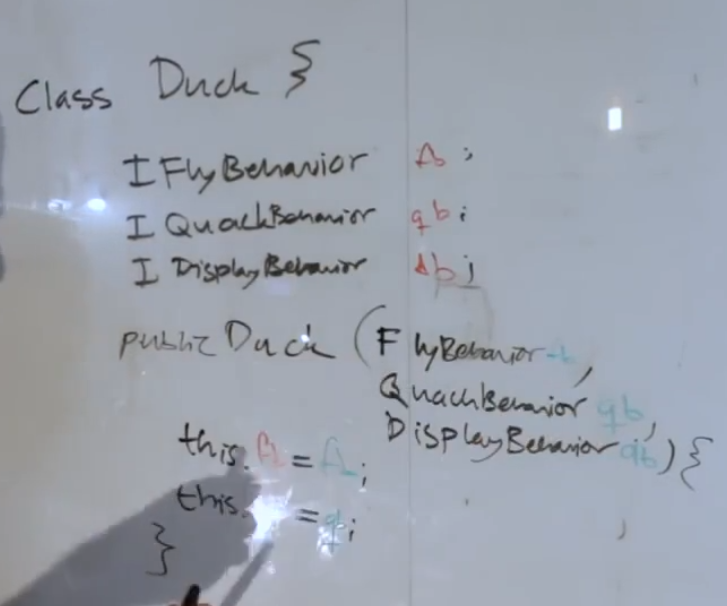 Class Duck {
IFlyBehavior fb;
IQuackBehavior qb;
IDisplayBehavior db;
public Duck (FlyBehavior
QuackBehavior qb,
DisplayBehavior db) {
this. = ;
this. = ;
}